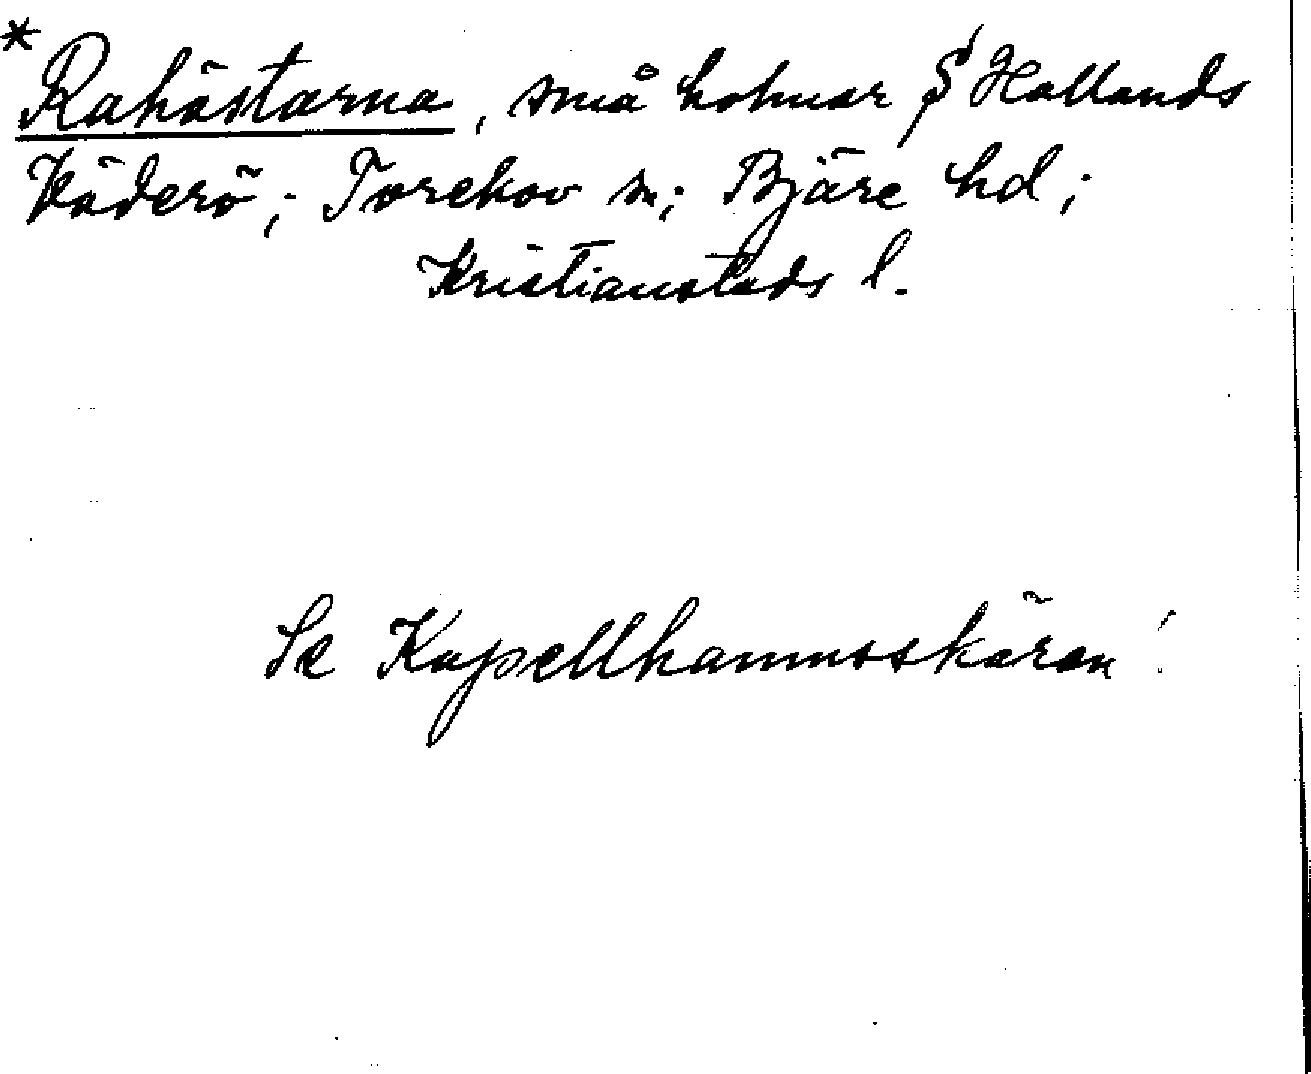 * Rahästarna, små holmar § Hallands
Väderö; Torekov sn; Bjäre hd;
Kristianstads l.
Se Kapellhamnsskären!